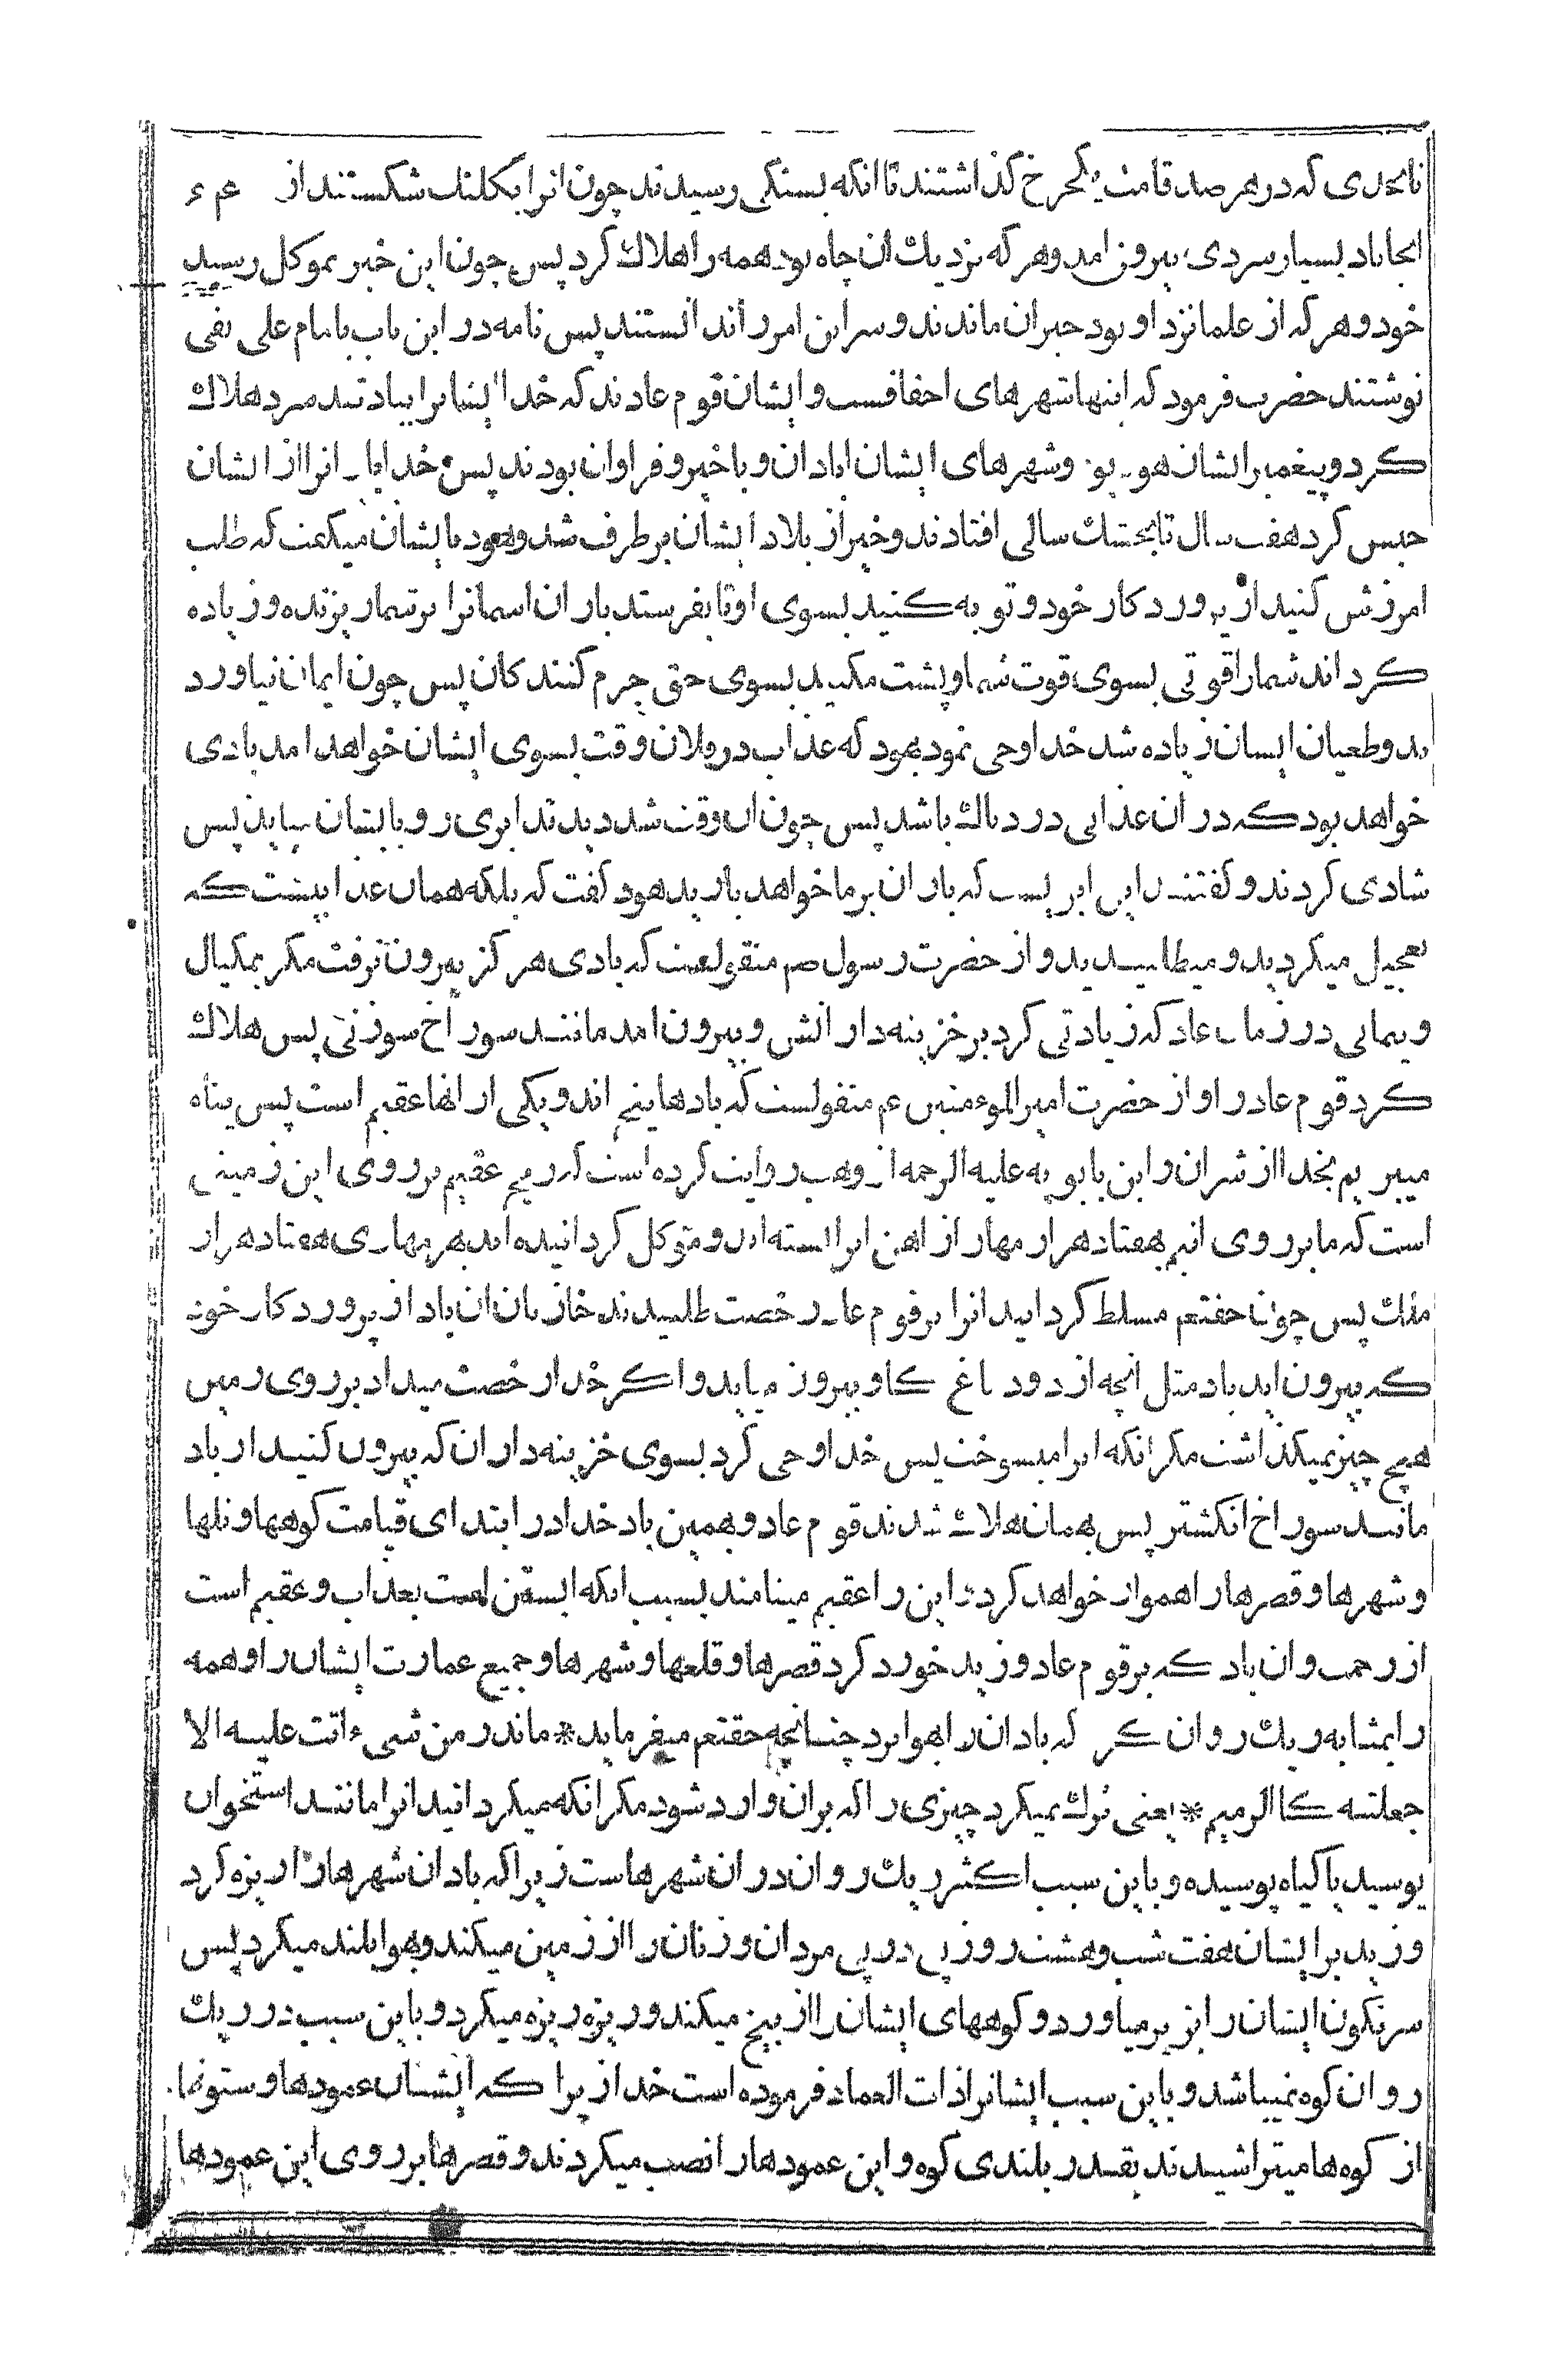 تابحدی که در هر صد قامت یکچرخ گذاشتند تا انکه بسنگی رسیدند چون انرا بکلنك شکستند از
انجا باد بسیار سردی بیرون امد و هر که نزدیك ان چاه بود همه را هلاك کرد پس چون این خبر بموکل رسید
خود و هر که از علما نزد او بود حیران ماندند و سر این امر را ندانستند پس نامه در این باب بامام علی نقی
نوشتند حضرت فرمود که اینها شهرهای احقافست و ایشان قوم عادند که خدا ایشانرا بباد تند سرد هلاك
کرد و پیغمبر ایشان هود بود و شهرهای ایشان ابادان و با خیر و فراوان بودند پس خدا بارانرا از ایشان
حبس کرد هفت سال تا بخشك سالی افتادند و خیر از بلاد ایشان بر طرف شد و هود بایشان میگفت که طلب
امرزش کنید از پروردکار خود و توبه کنید بسوی او تا بفرستد باران اسمانرا بر شما ریزنده و زیاده
کرداند شما را قوتی بسوی قوت شما و پشت مکنید بسوی حق جرم کنندکان پس چون ایمان نیاورد
ند و طغیان ایشان زیاده شد خدا وحی نمود بهود که عذاب در فلان وقت بسوی ایشان خواهد امد بادی
خواهد بود که در ان عذابی دردناك باشد پس چون ان وقت شد دیدند ابری رو بایشان میاید پس
شادی کردند و گفتند این ابریست که باران بر ما خواهد بارید هود گفت که بلکه همان عذابیست که
تعجیل میکردید و میطلبیدید و از حضرت رسول صم منقولست که بادی هرگز بیرون نرفت مکر بمکیال
و پیمانی در زمان عاد که زیادتی کرد بر خزینه دارانش و بیرون امد مانند سوراخ سوزنی پس هلاك
کرد قوم عاد را و از حضرت امیر الموءمنین عم منقولست که بادها پنج اند و یکی از انها عقیم است پس پناه
میبریم بخدا از شر ان و ابن بابویه علیه الرحمه از وهب روایت کرده است که ریح عقیم بر روی این زمینی
است که ما بر روی انیم بهفتاد هزار مهار از اهن انرا بسته اند و متوکل کردانیده اند بهر مهاری هفتاد هزار
ملك پس چون حقتعم مسلط کردانید انرا بر قوم عاد رخصت طلبیدند خازنان ان باد از پروردکار خود
که بیرون اید باد مثل انچه از دود ماغ کاو بیرون میاید و اکر خدا رخصت میداد بر روی زمین
هیچ چیز نمیگذاشت مکر انکه انرا میسوخت پس خدا وحی کرد بسوی خزینه داران که بیرون کنید از باد
مانند سوراخ انکشتر پس بهمان هلاك شدند قوم عاد و بهمین باد خدا در ابتدای قیامت کوهها و تلها
و شهرها و قصرها را هموار خواهد کرد و این را عقیم مینامند بسبب انکه ابستن است بعذاب و عقیم است
از رحمت و ان باد که بر قوم عاد وزید خورد کرد قصرها و قلعها و شهرها و جمیع عمارت ایشان را و همه
را بمثابه ریك روان کر که باد ان را بهوا برد چنانچه حقتعم میفرماید * ماتذر من شیء اتت علیه الا
جعلته کاالرمیم * یعنی ترك نمیکرد چیزی را که بر ان وارد شود مکر انکه میکردانید انرا مانند استخوان
پوسید یا کیاه پوسیده و باین سبب اکثر ریك روان در ان شهرهاست زیرا که باد ان شهرها را ریزه کرد
وزید بر ایشان هفت شب و هشت روز پی در پی مردان و زنان را از زمین میکند و بهوا بلند میکرد پس
سرنکون ایشان را بزیر میاورد و کوههای ایشان را از بیخ میکند و ریزه ریزه میکرد و باین سبب در ریك
روان کوه نمیباشد و باین سبب ایشانرا ذات العماد فرموده است خدا زیرا که ایشان عمودها و ستونها
از کوه ها میتراشیدند بقدر بلندی کوه و این عمودها را نصب میکردند و قصرها بر روی این عمودها